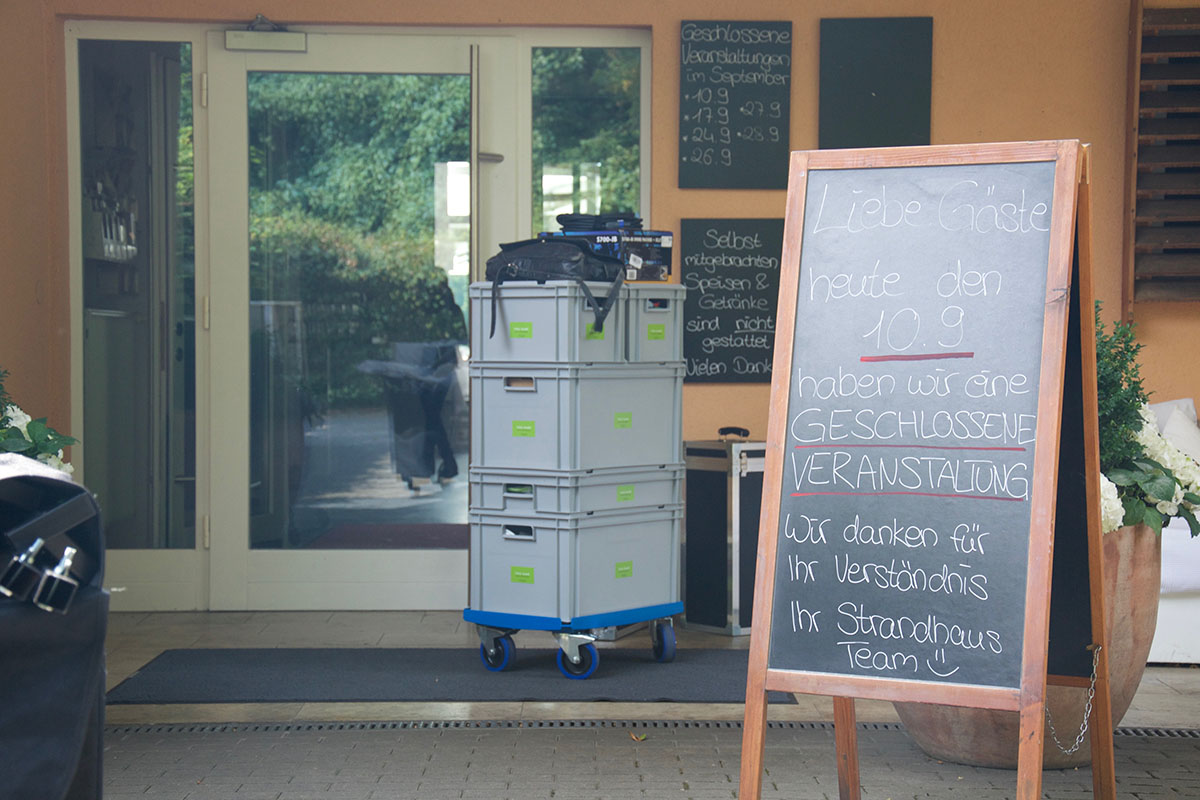 Geschlossene
Veranstaltungen
im September
• 10.9 • 27.9
• 17.9
• 24.9 • 28.9
• 26.9
Selbst
mitgebrachten
Speisen &
Getränke
sind nicht
gestattet
Vielen Dank
Liebe Gäste
heute den
10.9
haben wir eine
GESCHLOSSENE
VERANSTALTUNG
Wir danken für
Ihr Verständnis
Ihr Strandhaus
Team